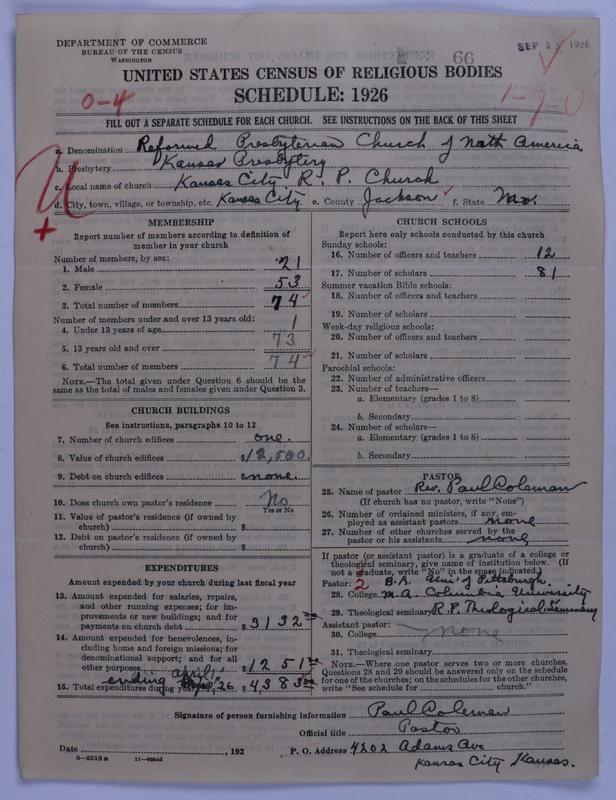 DEPARTMENT OF COMMERCE
BUREAU OF THE CENSUS
WASHINGTON
66
SEP 23 1926
UNITED STATES CENSUS OF RELIGIOUS BODIES
SCHEDULE: 1926
0-4
1-9-0
FILL OUT A SEPARATE SCHEDULE FOR EACH CHURCH. SEE INSTRUCTIONS ON THE BACK OF THIS SHEET
a. Denomination Reformed Presbyterian Church of North America
b. Presbytery Kansas Presbytery
c. Local name of church Kansas City R. P. Church
d. City, town, village, or township, etc. Kansas City e. County Jackson f. State Mo.
MEMBERSHIP
Report number of members according to definition of
member in your church
Number of members, by sex:
1. Male 21
2. Female 53
3. Total number of members 74
Number of members under and over 13 years old:
4. Under 13 years of age 1
5. 13 years old and over 73
6. Total number of members 74
NOTE.—The total given under Question 6 should be the
same as the total of males and females given under Question 3.
CHURCH BUILDINGS
See instructions, paragraphs 10 to 12
7. Number of church edifices one.
8. Value of church edifices $12,500.
9. Debt on church edifices $none.
10. Does church own pastor's residence No
Yes or No
11. Value of pastor's residence (if owned by
church) $
12. Debt on pastor's residence (if owned by
church) $
EXPENDITURES
Amount expended by your church during last fiscal year
13. Amount expended for salaries, repairs,
and other running expenses; for im-
provements or new buildings; and for
payments on church debt $3132.00
14. Amount expended for benevolences, in-
cluding home and foreign missions; for
denominational support; and for all
other purposes $1251.00
ending April,
15. Total expenditures during year 26 $4,383.00
CHURCH SCHOOLS
Report here only schools conducted by this church
Sunday schools:
16. Number of officers and teachers 12
17. Number of scholars 81
Summer vacation Bible schools:
18. Number of officers and teachers
19. Number of scholars
Week-day religious schools:
20. Number of officers and teachers
21. Number of scholars
Parochial schools:
22. Number of administrative officers
23. Number of teachers—
a. Elementary (grades 1 to 8)
b. Secondary
24. Number of scholars—
a. Elementary (grades 1 to 8)
b. Secondary
PASTOR
25. Name of pastor Rev. Paul Coleman
(If church has no pastor, write "None")
26. Number of ordained ministers, if any, em-
ployed as assistant pastors none
27. Number of other churches served by the
pastor or his assistants none
If pastor (or assistant pastor) is a graduate of a college or
theological seminary, give name of institution below. (If
not a graduate, write "No" in the space indicated.)
Pastor: 2 B.A. Univ of Pittsburgh.
28. College M.A. Columbia University
29. Theological seminary R.P. Theological Seminary
Assistant pastor:
30. College none
31. Theological seminary
NOTE.—Where one pastor serves two or more churches,
Questions 28 and 29 should be answered only on the schedule
for one of the churches; on the schedules for the other churches,
write "See schedule for church."
Signature of person furnishing information Paul Coleman
Official title Pastor
Date , 192 P. O. Address 4202 Adams Ave
Kansas City Kansas.
8-5518a